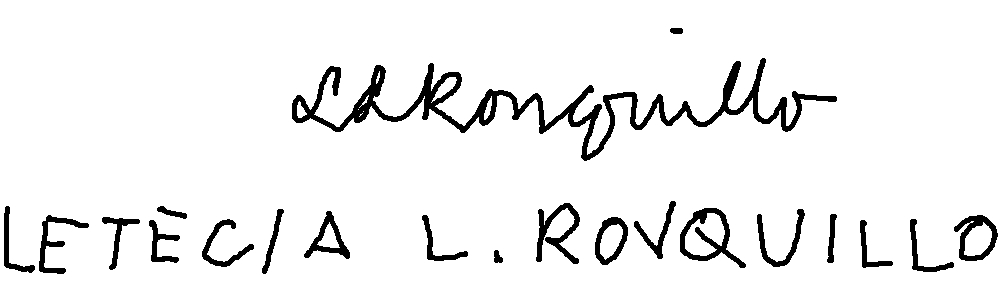 LLRonquillo
LETECIA L. RONQUILLO